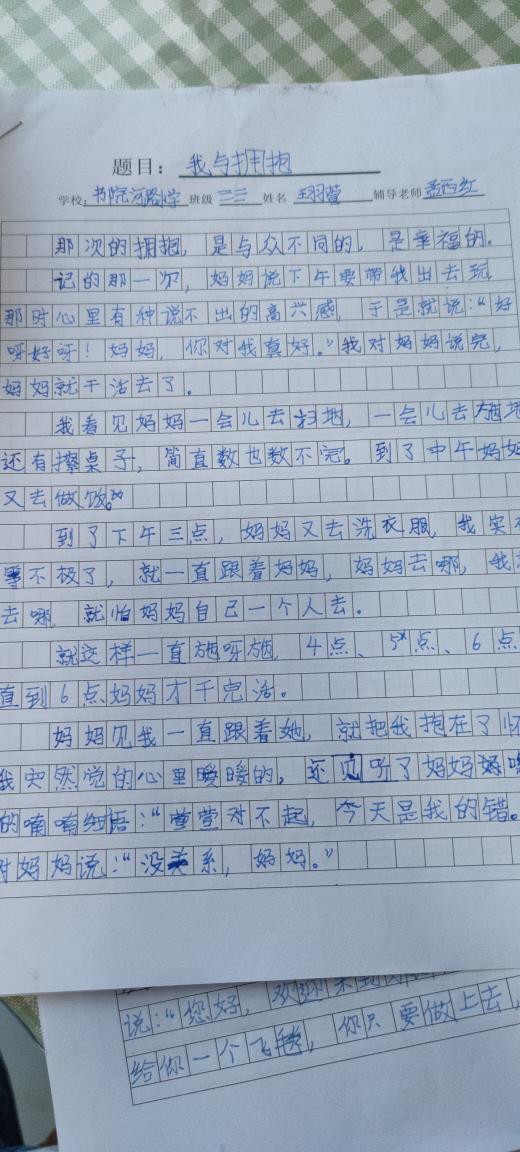 题目：我与拥抱
学校：书院河路小学 班级 三三 姓名 王羽萱 辅导老师 孟西红
那次的拥抱，是与众不同的，是幸福的。
记的那一次，妈妈说下午要带我出去玩，
那时心里有种说不出的高兴感，于是就说：“好
呀好呀！妈妈，你对我真好。”我对妈妈说完，
妈妈就干活去了。
我看见妈妈一会儿去扫地，一会儿去拖地
还有擦桌子，简直数也数不完。到了中午妈妈
又去做饭。
到了下午三点，妈妈又去洗衣服，我实在
等不极了，就一直跟着妈妈，妈妈去哪，我
去哪，就怕妈妈自己一个人去。
就这样一直拖呀拖，4点、5点、6点
直到6点妈妈才干完活。
妈妈见我一直跟着她，就把我抱在了怀
我突然觉的心里暖暖的，还听了妈妈
的喃喃细语：“萱萱对不起，今天是我的错。
对妈妈说：“没关系，妈妈。”
说：“您好，欢迎来到
给你一个飞毯，你只要做上去，